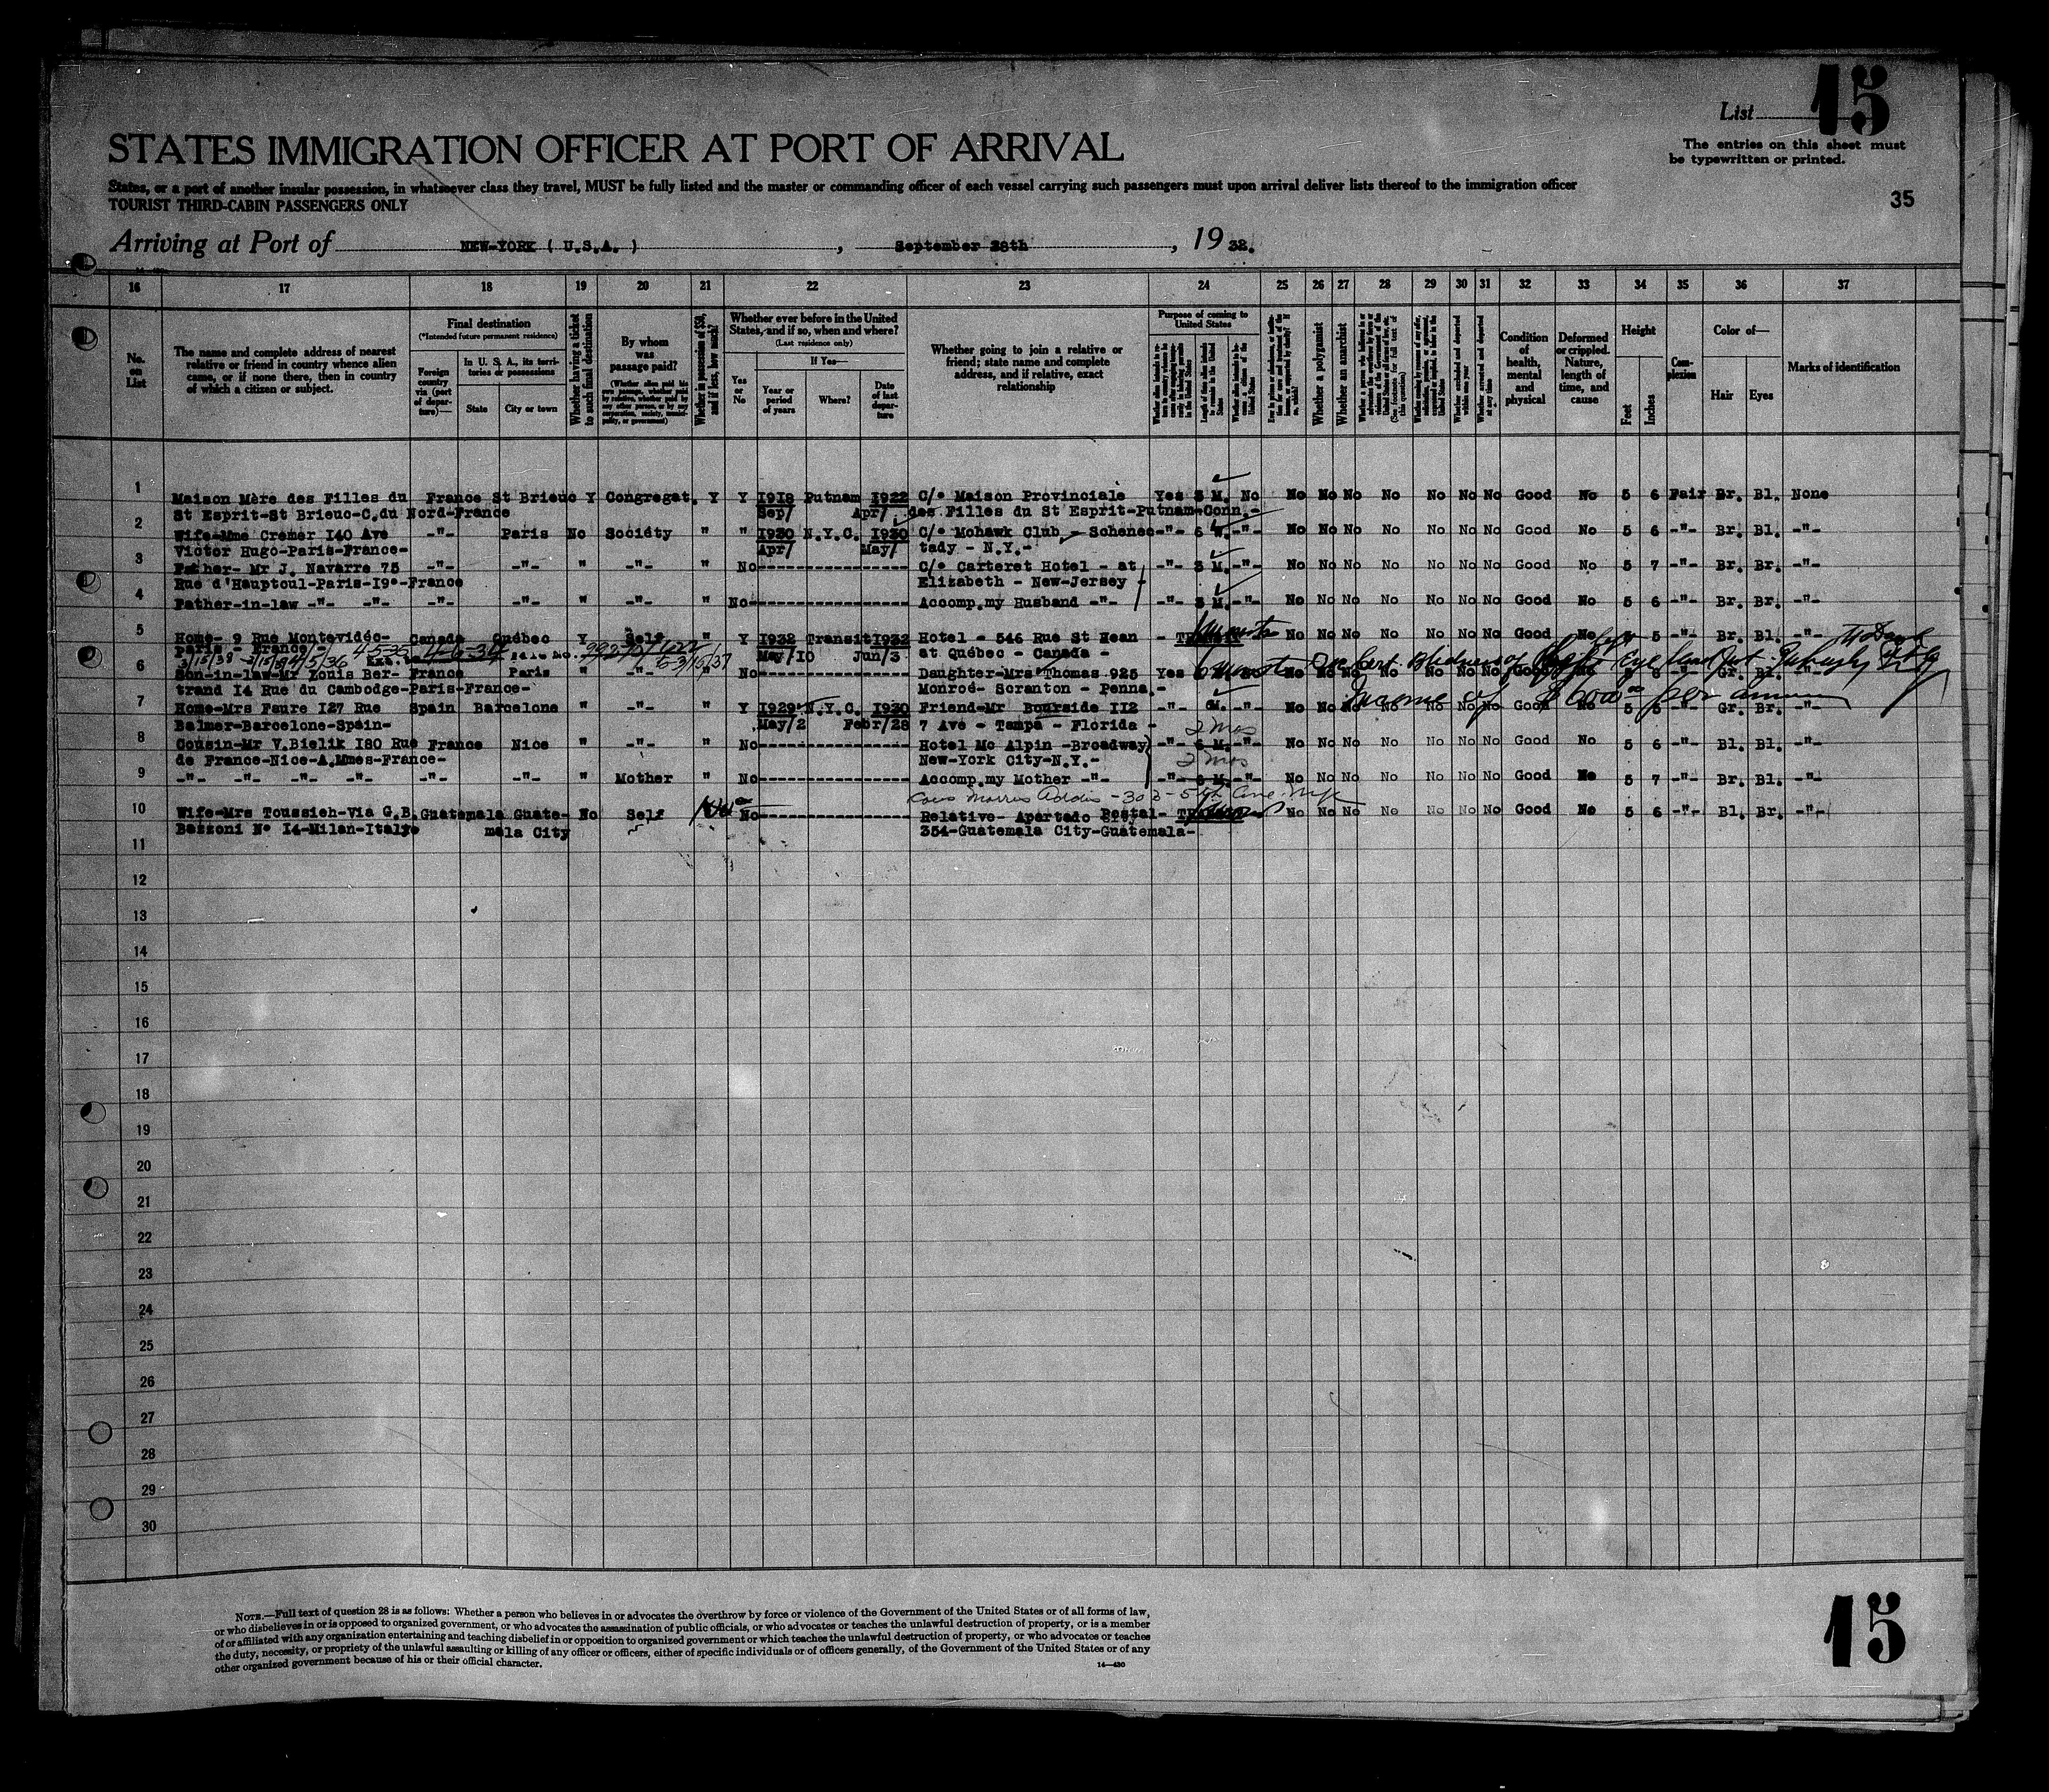 List 15
The entries on this sheet must
be typewritten or printed.
STATES IMMIGRATION OFFICER AT PORT OF ARRIVAL
States, or a port of another insular possession, in whatsoever class they travel, MUST be fully listed and the master or commanding officer of each vessel carrying such passengers must upon arrival deliver lists thereof to the immigration officer
TOURIST THIRD-CABIN PASSENGERS ONLY
35
Arriving at Port of NEW-YORK ( U.S.A. ), September 28th, 19 32.
16 17 18 19 20 21 22 23 24 25 26 27 28 29 30 31 32 33 34 35 36 37
No. on List
The name and complete address of nearest relative or friend in country whence alien came, or if none there, then in country of which a citizen or subject.
Final destination
(*Intended future permanent residence)
Foreign country via (port of departure)—
In U. S. A., its territories or possessions
State
City or town
Whether having a ticket to such final destination
By whom was passage paid?
(Whether alien paid his own passage, whether paid by relative, whether paid by any other person, or by any corporation, society, municipality, or government)
Whether in possession of $50, and if less, how much?
Whether ever before in the United States, and if so, when and where?
(Last residence only)
Yes or No
If Yes—
Year or period of years
Where?
Date of last departure
Whether going to join a relative or friend; state name and complete address, and if relative, exact relationship
Purpose of coming to United States
Length of time alien intends to remain in the United States
Whether alien intends to become a citizen of the United States
Whether a polygamist
Whether an anarchist
(See footnote for full text of this question)
Whether arrested and deported within one year
Whether arrested and deported at any time
Condition of health, mental and physical
Deformed or crippled. Nature, length of time, and cause
Height
Feet
Inches
Complexion
Color of—
Hair
Eyes
Marks of identification
1 Maison Mère des Filles du France St Brieuc Y Congregat. Y Y 1918 Putnam 1922 C/° Maison Provinciale Yes 3 M. No No No No No No No No Good No 5 6 Fair Br. Bl. None
St Esprit-St Brieuc-C.du Nord-France Sep/ Apr/ des Filles du St Esprit-Putnam-Conn.-
2 Wife-Mme Cremer 140 Ave -"- Paris No Society " " 1930 N.Y.C. 1930 C/° Mohawk Club - Schenec- -"- 6 W. -"- No No No No No No No Good No 5 6 -"- Br. Bl. -"-
Victor Hugo-Paris-France- Apr/ May/ tady - N.Y.-
3 Father- Mr J. Navarre 75 -"- -"- " -"- " No C/° Carteret Hotel - at -"- 3 M. -"- No No No No No No No Good No 5 7 -"- Br. Br. -"-
Rue d'Hauptoul-Paris-19°-France Elizabeth - New-Jersey -
4 Father-in-law -"- -"- -"- -"- " -"- " No Accomp.my Husband -"- -"- 3 M. -"- No No No No No No No Good No 5 6 -"- Br. Br. -"-
5 Home- 9 Rue Montevidéo- Canada Québec Y Self " Y 1932 Transit 1932 Hotel - 546 Rue St Jean - No No No No No No No Good No 5 -"- Br. Bl. -"-
Paris - France- 4-5-35 May/10 Jun/3 at Québec - Canada -
3/15/38 4/5/36
6 Son-in-law-Mr Louis Ber- France Paris " -"- " No Daughter-Mrs Thomas 925 Yes 6 No No No No No No No No Good No 5 5 -"- Gr. Bl. -"-
trand 14 Rue du Cambodge-Paris-France- Monroé- Scranton - Penna.-
Income of per annum
7 Home-Mrs Faure 127 Rue Spain Barcelone " -"- " Y 1929 N.Y.C. 1930 Friend-Mr Bourside 112 -"- 6 M. -"- No No No No No No No Good No 5 5 -"- Gr. Br. -"-
Balmer-Barcelone-Spain- May/2 Febr/28 7 Ave - Tampa - Florida -
2 mos
8 Cousin-Mr V.Bielik 180 Rue France Nice " -"- " No Hotel Mc Alpin -Broadway -"- 6 M. -"- No No No No No No No Good No 5 6 -"- Bl. Bl. -"-
de France-Nice-A.Mmes-France- New-York City-N.Y.-
2 mos
9 -"- -"- -"- -"- -"- -"- " Mother " No Accomp.my Mother -"- -"- 6 M. -"- No No No No No No No Good No 5 7 -"- Br. Bl. -"-
10 Wife-Mrs Toussieh-Via G.B. Guatemala Guate- No Self No Relative- Apartado Postal- No No No No No No No Good No 5 6 -"- Bl. Br. -"-
Bazzoni N° 14-Milan-Italye mala City 354-Guatemala City-Guatemala-
11
12
13
14
15
16
17
18
19
20
21
22
23
24
25
26
27
28
29
30
NOTE.—Full text of question 28 is as follows: Whether a person who believes in or advocates the overthrow by force or violence of the Government of the United States or of all forms of law,
or who disbelieves in or is opposed to organized government, or who advocates the assassination of public officials, or who advocates or teaches the unlawful destruction of property, or is a member
of or affiliated with any organization entertaining and teaching disbelief in or opposition to organized government or which teaches the unlawful destruction of property, or who advocates or teaches
the duty, necessity, or propriety of the unlawful assaulting or killing of any officer or officers, either of specific individuals or of officers generally, of the Government of the United States or of any
other organized government because of his or their official character.
14—430
15